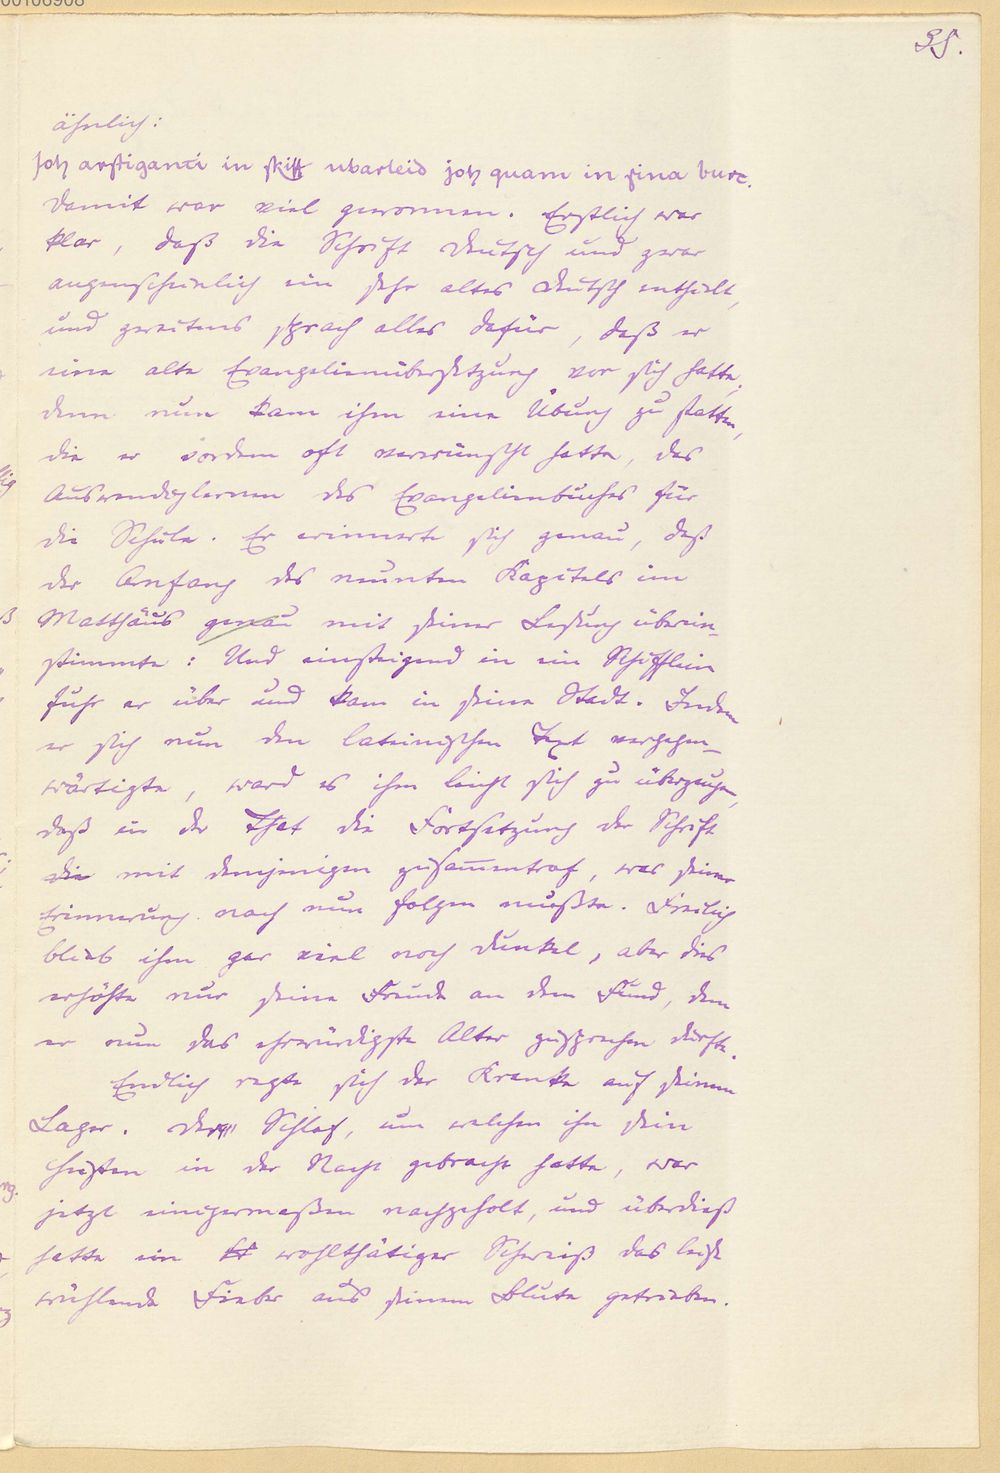 00106908
35.
ähnlich:
joh arstiganti in skiff ubarleid joh quam in sina burc.
Damit war viel gewonnen. Erstlich war
klar, daß die Schrift deutsch und zwar
augenscheinlich ein sehr altes Deutsch enthielt,
und zweitens sprach alles dafür, daß er
eine alte Evangelienübersetzung vor sich hatte,
denn nun kam ihm eine Übung zu statten,
die er vordem oft verwünscht hatte, das
Auswendiglernen des Evangelienbuches für
die Schule. Er erinnerte sich genau, daß
der Anfang des neunten Kapitels im
Matthäus genau mit seiner Lesung überein-
stimmte: Und einsteigend in ein Schifflein
fuhr er über und kam in seine Stadt. Indem
er sich nun den lateinischen Text vergegen-
wärtigte, ward es ihm leicht sich zu überzeugen,
daß in der That die Fortsetzung der Schrift
die mit demjenigen zusammentraf, was seiner
Erinnerung nach nun folgen mußte. Freilich
blieb ihm gar viel noch dunkel, aber dies
erhöhte nur seine Freude an dem Fund, dem
er nun das ehrwürdigste Alter zusprechen durfte.
Endlich regte sich der Kranke auf seinem
Lager. Der Schlaf, um welchen ihn sein
Husten in der Nacht gebracht hatte, war
jetzt einigermaßen nachgeholt, und überdieß
hatte ein wohlthätiger Schweiß das leise
wühlende Fieber aus seinem Blute getrieben.